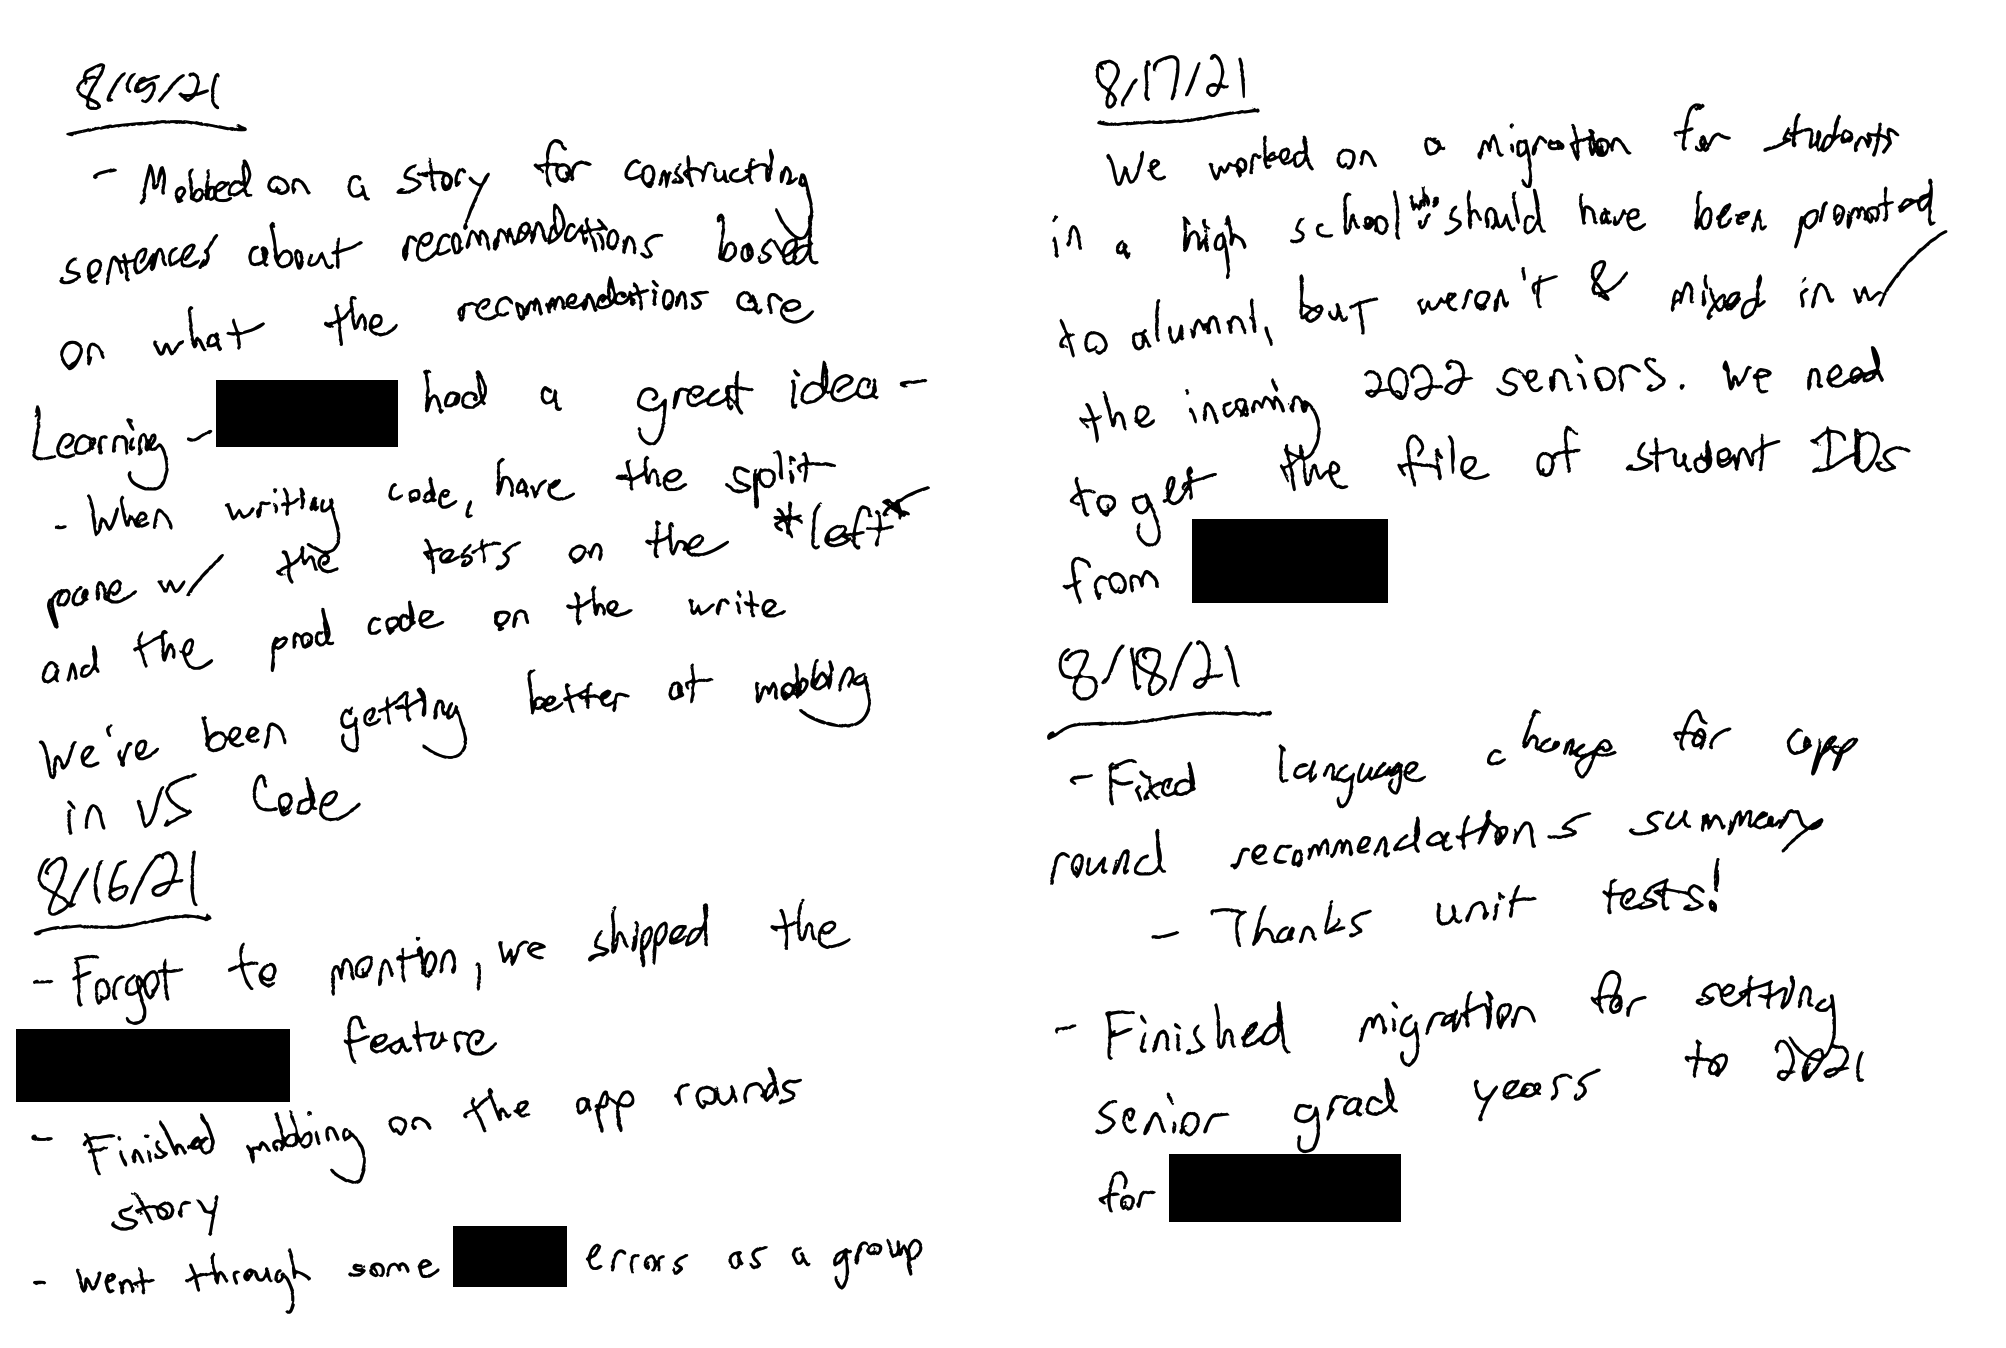 8/15/21
- Mobbed on a story for constructing
sentences about recommendations based
on what the recommendations are
Learning - had a great idea -
- When writing code, have the split
pane w/ the tests on the *left*
and the prod code on the write
We've been getting better at mobbing
in VS Code
8/16/21
- Forgot to mention, we shipped the
feature
- Finished mobbing on the app rounds
story
- went through some errors as a group
8/17/21
We worked on a migration for students
in a high school who should have been promoted
to alumni, but weren't & mixed in w/
the incoming 2022 seniors. We need
to get the file of student IDs
from
8/18/21
- Fixed language change for app
round recommendations summary
- Thanks unit tests!
- Finished migration for setting
senior grad years to 2021
for